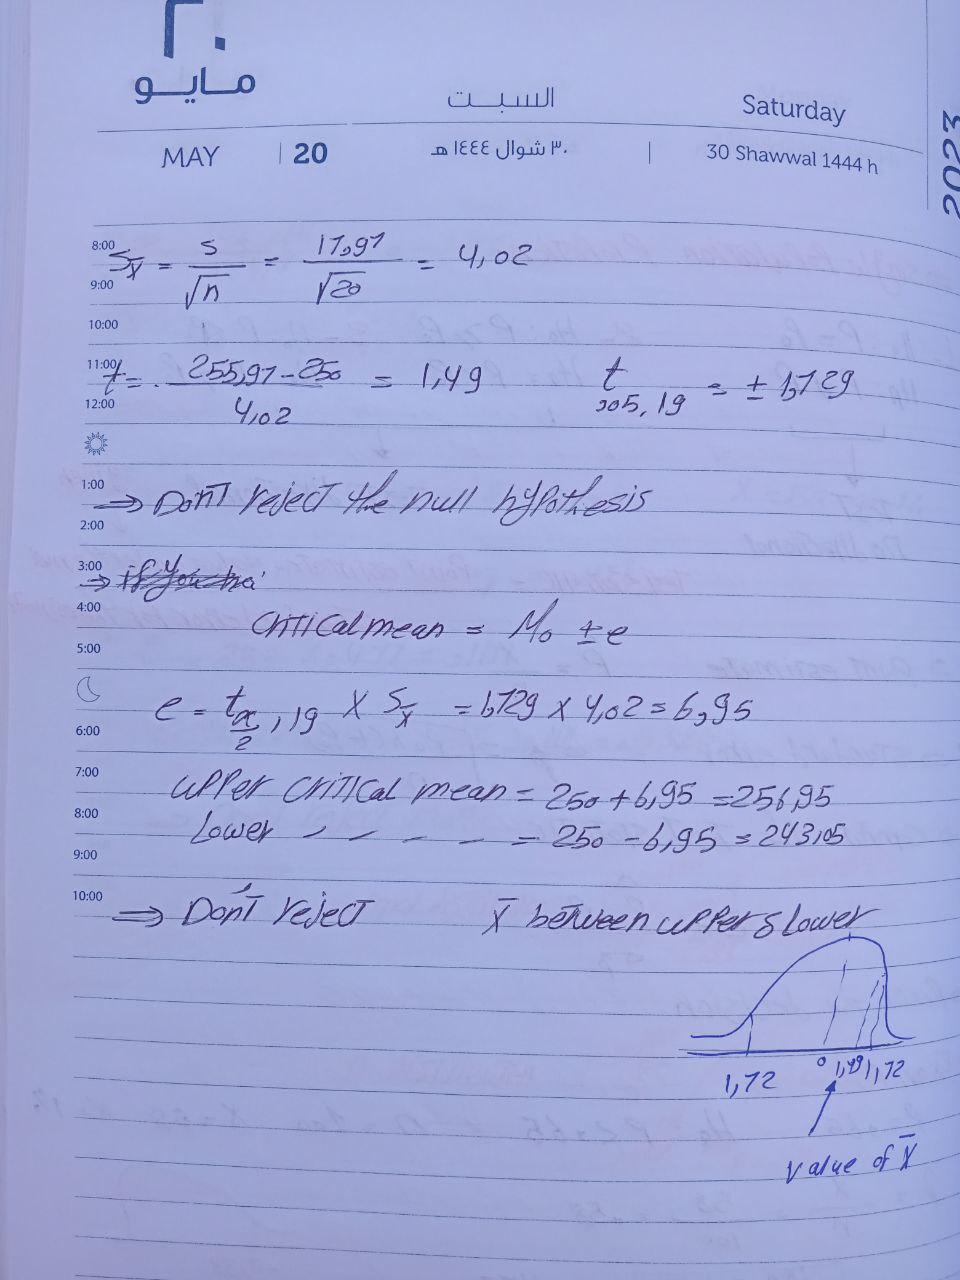 ٢٠
مايو
السبت
Saturday
MAY | 20
٣٠ شوال ١٤٤٤ هـ
| 30 Shawwal 1444 h
2023
8:00
S x̄ = s / √n = 17,97 / √20 = 4,02
9:00
10:00
11:00
t = 255,97 - 250 / 4,02 = 1,49 t ,05, 19 = ± 1,729
12:00
1:00
⇒ Don't reject the null hypothesis
2:00
3:00
4:00
critical mean = M₀ ± e
5:00
e = t α/2 , 19 X S x̄ = 1,729 X 4,02 = 6,95
6:00
7:00
upper critical mean = 250 + 6,95 = 256,95
8:00
Lower = 250 - 6,95 = 243,05
9:00
10:00
⇒ Don't reject x̄ between upper & lower
1,72 0 1,49 1,72
value of x̄